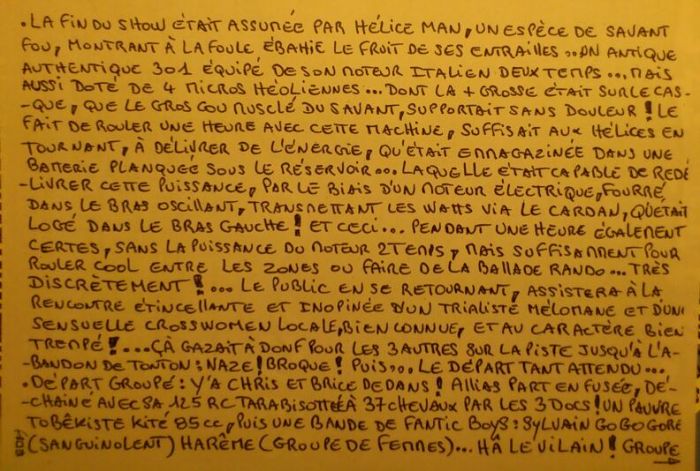 .LA FIN DU SHOW ÉTAIT ASSUREÉ PAR HÉLICE MAN, UN ESPÈCE DE SAVANT
FOU, MONTRANT À LA FOULE ÉBAHIE LE FRUIT DE SES ENTRAILLES.. UN ANTIQUE
AUTHENTIQUE 301 ÉQUIPÉ DE SON MOTEUR ITALIEN DEUX TEMPS... MAIS
AUSSI DOTÉ DE 4 MICROS HÉOLIENNES... DONT LA + GROSSE ÉTAIT SUR LE CAS-
-QUE, QUE LE GROS COU MUSCLÉ DU SAVANT, SUPPORTAIT SANS DOULEUR! LE
FAIT DE ROULER UNE HEURE AVEC CETTE MACHINE, SUFFISAIT AUX HÉLICES EN
TOURNANT, À DÉLIVRER DE L'ÉNERGIE, QU'ÉTAIT EMMAGAZINÉE DANS UNE
BATTERIE PLANQUÉE SOUS LE RÉSERVOIR... LAQUELLE ÉTAIT CAPABLE DE REDÉ
-LIVRER CETTE PUISSANCE, PAR LE BIAIS D'UN MOTEUR ÉLECTRIQUE, FOURRÉ
DANS LE BRAS OSCILLANT, TRANSMETTANT LES WATTS VIA LE CARDAN, QU'ÉTAIT
LOGÉ DANS LE BRAS GAUCHE! ET CECI... PENDANT UNE HEURE ÉGALEMENT
CERTES, SANS LA PUISSANCE DU MOTEUR 2 TEMPS, MAIS SUFFISAMMENT POUR
ROULER COOL ENTRE LES ZONES OU FAIRE DE LA BALLADE RANDO... TRÈS
DISCRÈTEMENT!... LE PUBLIC EN SE RETOURNANT, ASSISTERA À LA
RENCONTRE ÉTINCELLANTE ET INOPINÉE D'UN TRIALISTE MÉLOMANE ET D'UNE
SENSUELLE CROSSWOMEN LOCALE, BIEN CONNUE, ET AU CARACTÈRE BIEN
TREMPÉ!... ÇÀ GAZAIT À DONF POUR LES 3 AUTRES SUR LA PISTE JUSQU'À L'A-
-BANDON DE TONTON: NAZE! BROQUE! PUIS... LE DÉPART TANT ATTENDU...
.DÉPART GROUPÉ: Y'A CHRIS ET BRICE DEDANS! ALLIAS PART EN FUSÉE, DÉ-
-CHAINÉ AVEC SA 125 RC TARABISOTTÉE À 37 CHEVAUX PAR LES 3 DOCS! UN PAUVRE
TOBÊKISTE KITÉ 85cc, PUIS UNE BANDE DE FANTIC BOYS: SYLVAIN GO GO GORE
(SANGUINOLENT) HARÊME (GROUPE DE FEMMES)... HÂ LE VILAIN! GROUPE